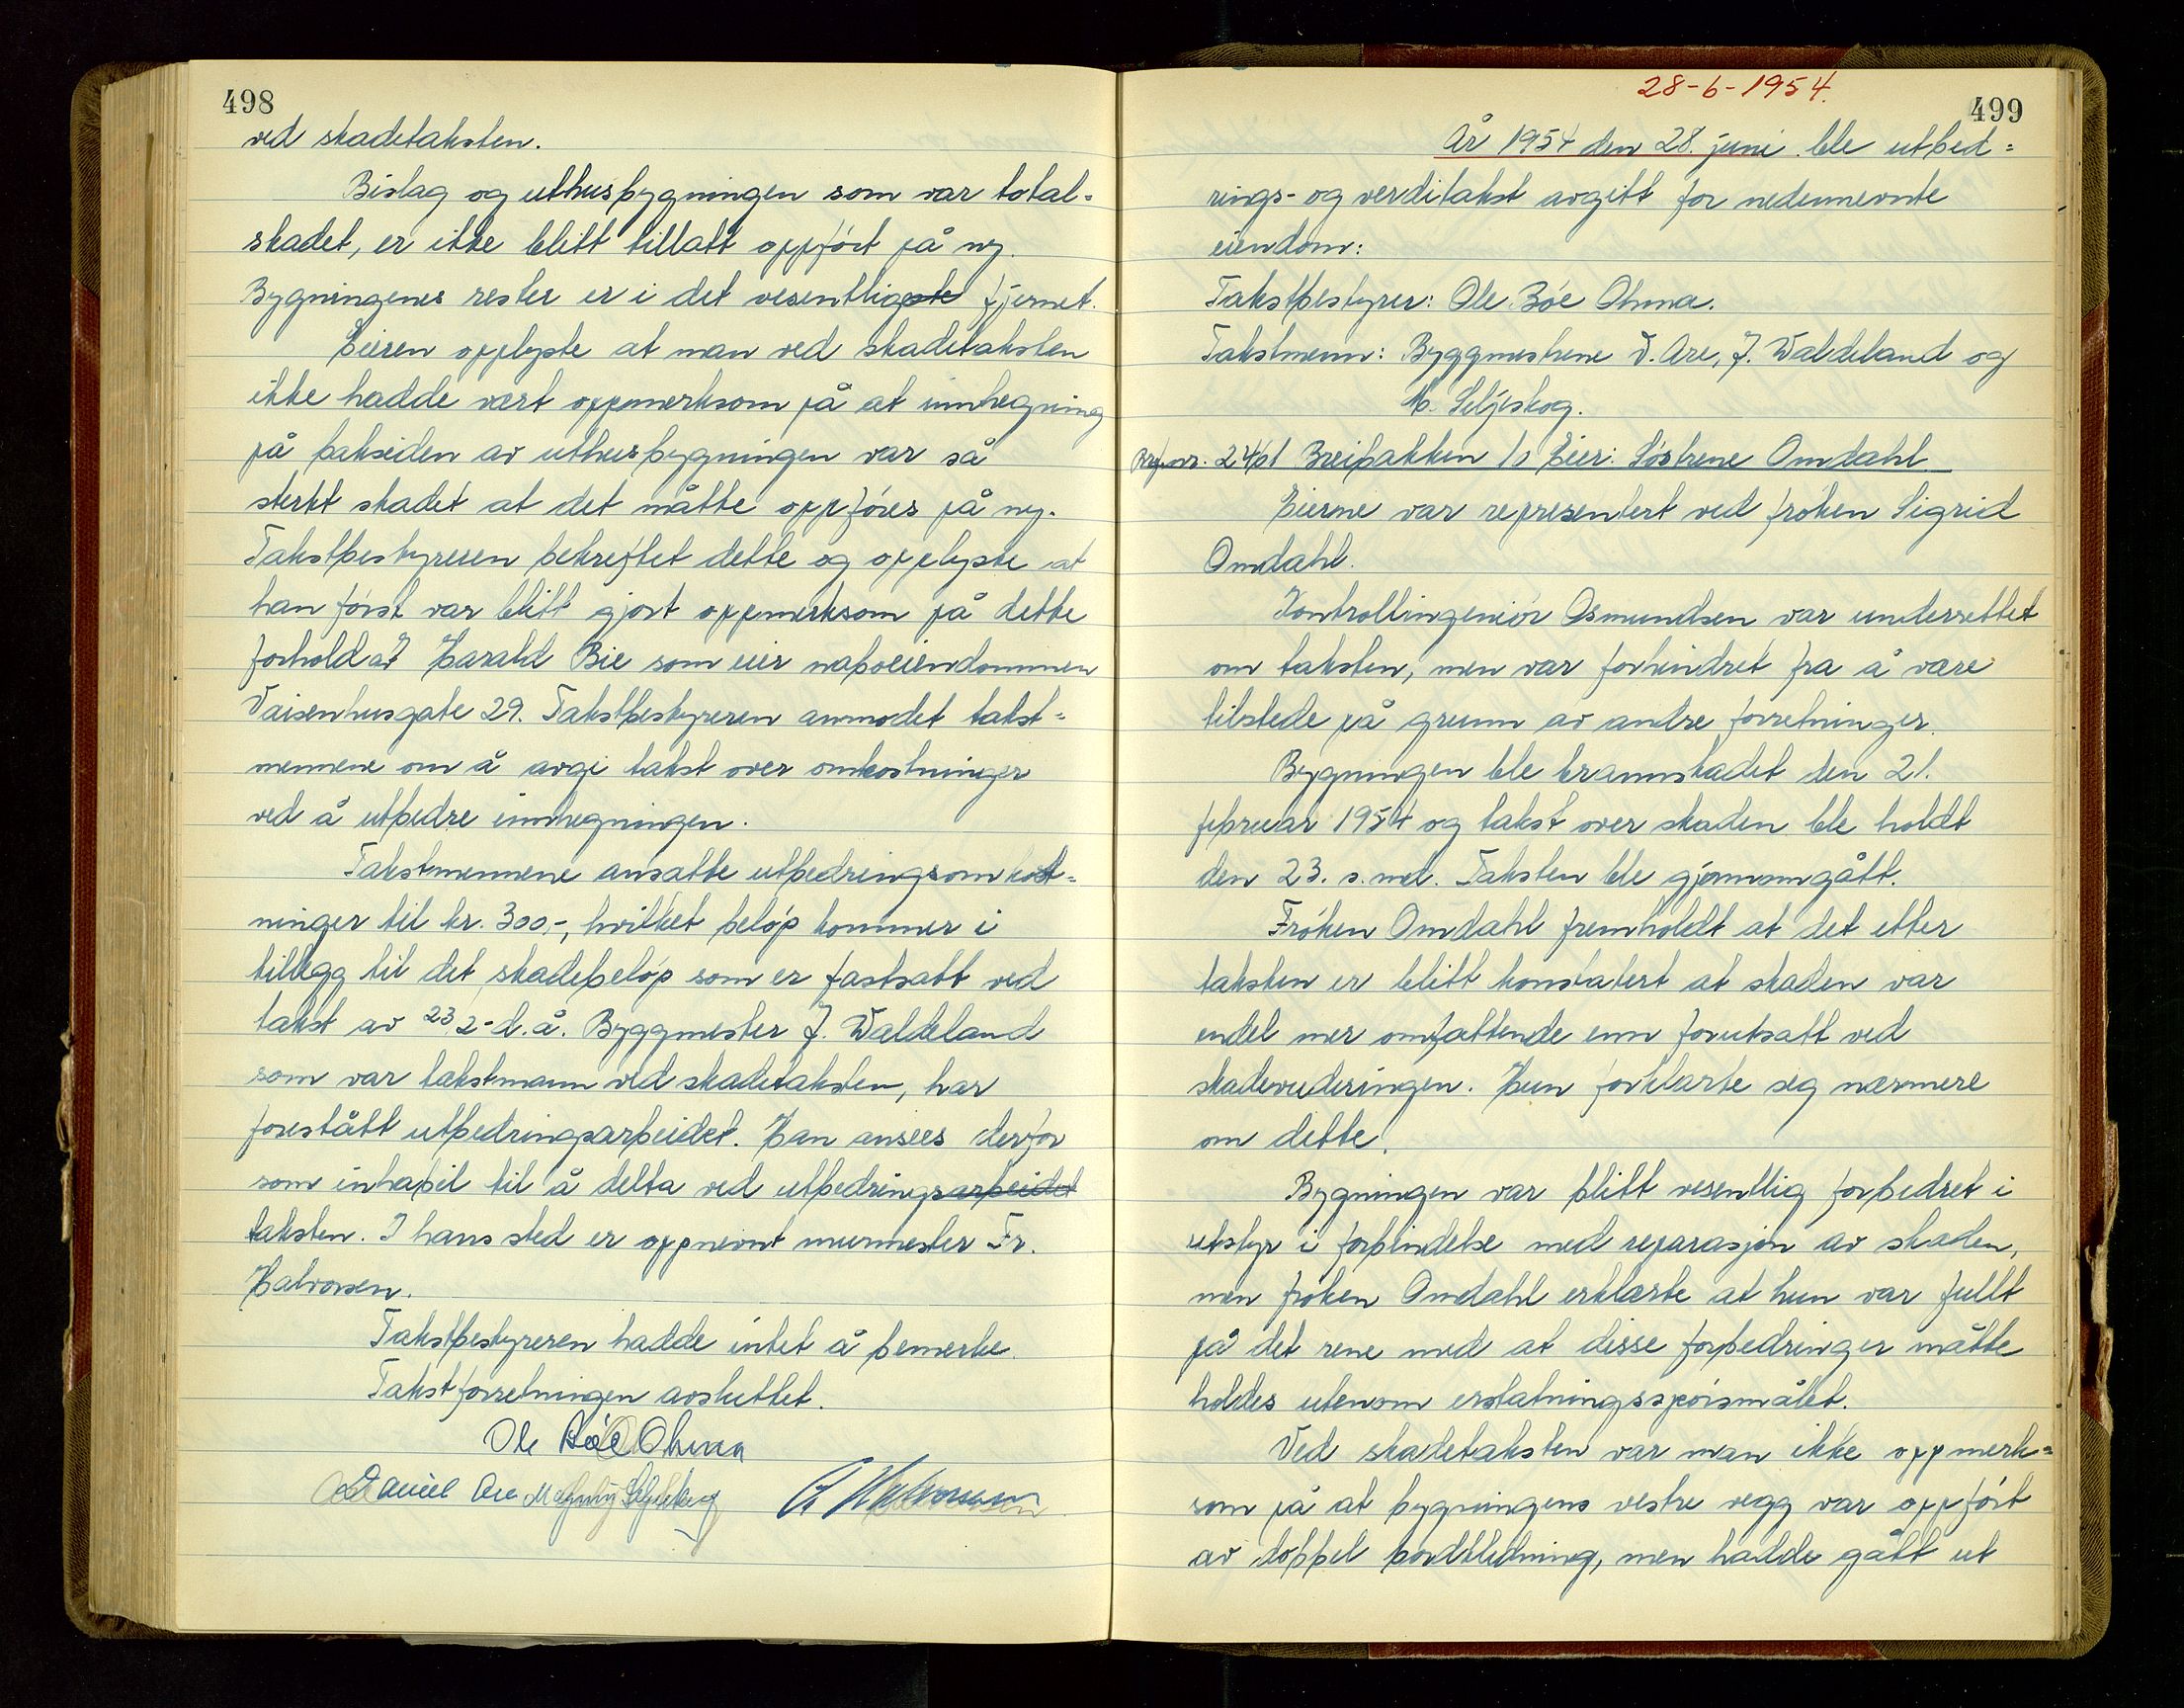 498
ved skadetaksten.
Bislag og uthusbygningen som var total=
skadet, er ikke blitt tillatt oppført på ny.
Bygningenes rester er i det vesentligste fjernet.
Eieren opplyste at man ved skadetaksten
ikke hadde vært oppmerksom på at innhegning
på baksiden av uthusbygningen var så
sterkt skadet at det måtte oppføres på ny.
Takstbestyreren bekreftet dette og opplyste at
han først var blitt gjort oppmerksom på dette
forhold af Harald Bie som eier naboeiendommen
Vaisenhusgate 29. Takstbestyreren anmodet takst=
mennene om å avgi takst over omkostninger
ved å utbedre innhegningen.
Takstmennene ansatte utbedringsomkost=
ninger til kr. 300,-, hvilket beløp kommer i
tillegg til det skadebeløp som er fastsatt ved
takst av 23/2- d.å. Byggmester J. Waldeland
som var takstmann ved skadetaksten, har
forestått utbedringsarbeidet. Han ansees derfor
som inhabil til å delta ved utbedringsarbeidet
taksten. I hans sted er oppnevnt murmester Fr.
Halvorsen.
Takstbestyreren hadde intet å bemerke.
Takstforretningen avsluttet.
Ole Bøe Ohma
Daniel Are Magnus Seljeskog Fr Halvorsen
28-6-1954.
499
År 1954 den 28. juni ble utbed=
rings- og verditakst avgitt for nedennevnte
eiendom:
Takstbestyrer: Ole Bøe Ohma.
Takstmenn: Byggmestrene D. Are, J. Waldeland og
M. Seljeskog.
Breibakken 10 Eier: Søstrene Omdahl
Eierne var representert ved frøken Sigrid
Omdahl.
Kontrollingeniør Osmundsen var underrettet
om taksten, men var forhindret fra å være
tilstede på grunn av andre forretninger.
Bygningen ble brannskadet den 21.
februar 1954 og takst over skaden ble holdt
den 23. s.md. Taksten ble gjennomgått.
Frøken Omdahl fremholdt at det etter
taksten er blitt konstatert at skaden var
endel mer omfattende enn forutsatt ved
skadevurderingen. Hun forklarte seg nærmere
om dette.
Bygningen var blitt vesentlig forbedret i
utstyr i forbindelse med reparasjon av skaden,
men frøken Omdahl erklærte at hun var fullt
på det rene med at disse forbedringer måtte
holdes utenom erstatningsspørsmålet.
Ved skadetaksten var man ikke oppmerk=
som på at bygningens vestre vegg var oppført
av dobbel bordkledning, men hadde gått ut